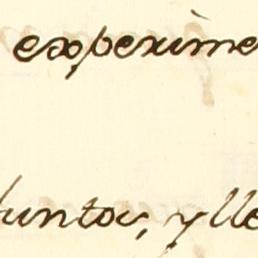 experime
untos, y lle